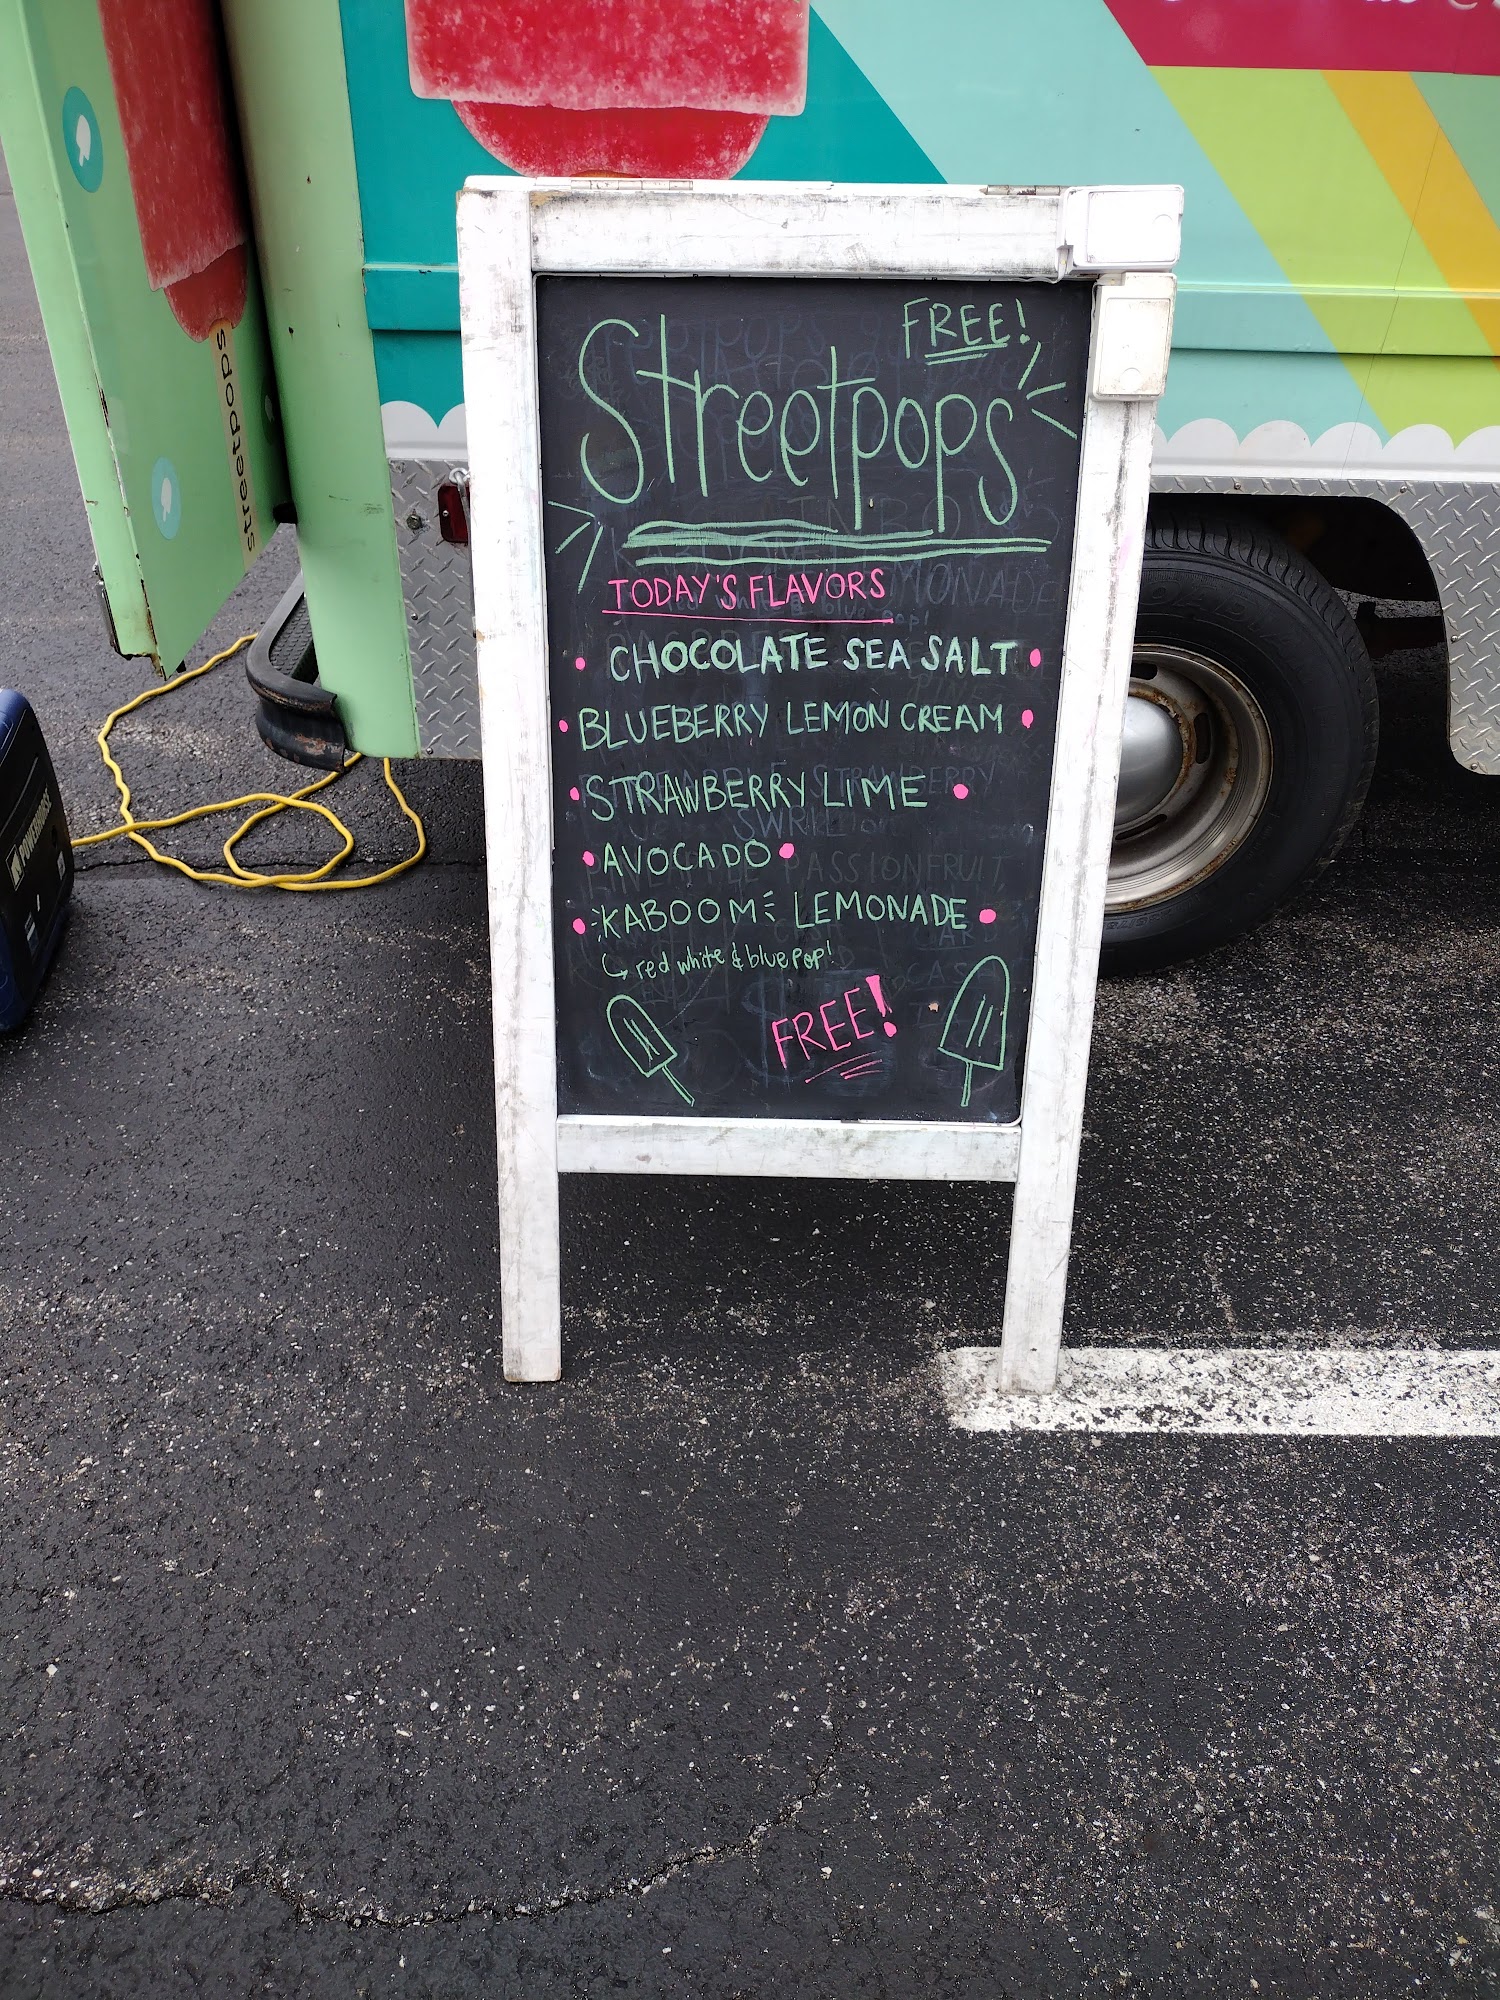 FREE!
Streetpops
TODAY'S FLAVORS
CHOCOLATE SEA SALT
BLUEBERRY LEMON CREAM
STRAWBERRY LIME
AVOCADO
KABOOM LEMONADE
red white & blue pop!
FREE!
streetpops
POWERHORSE